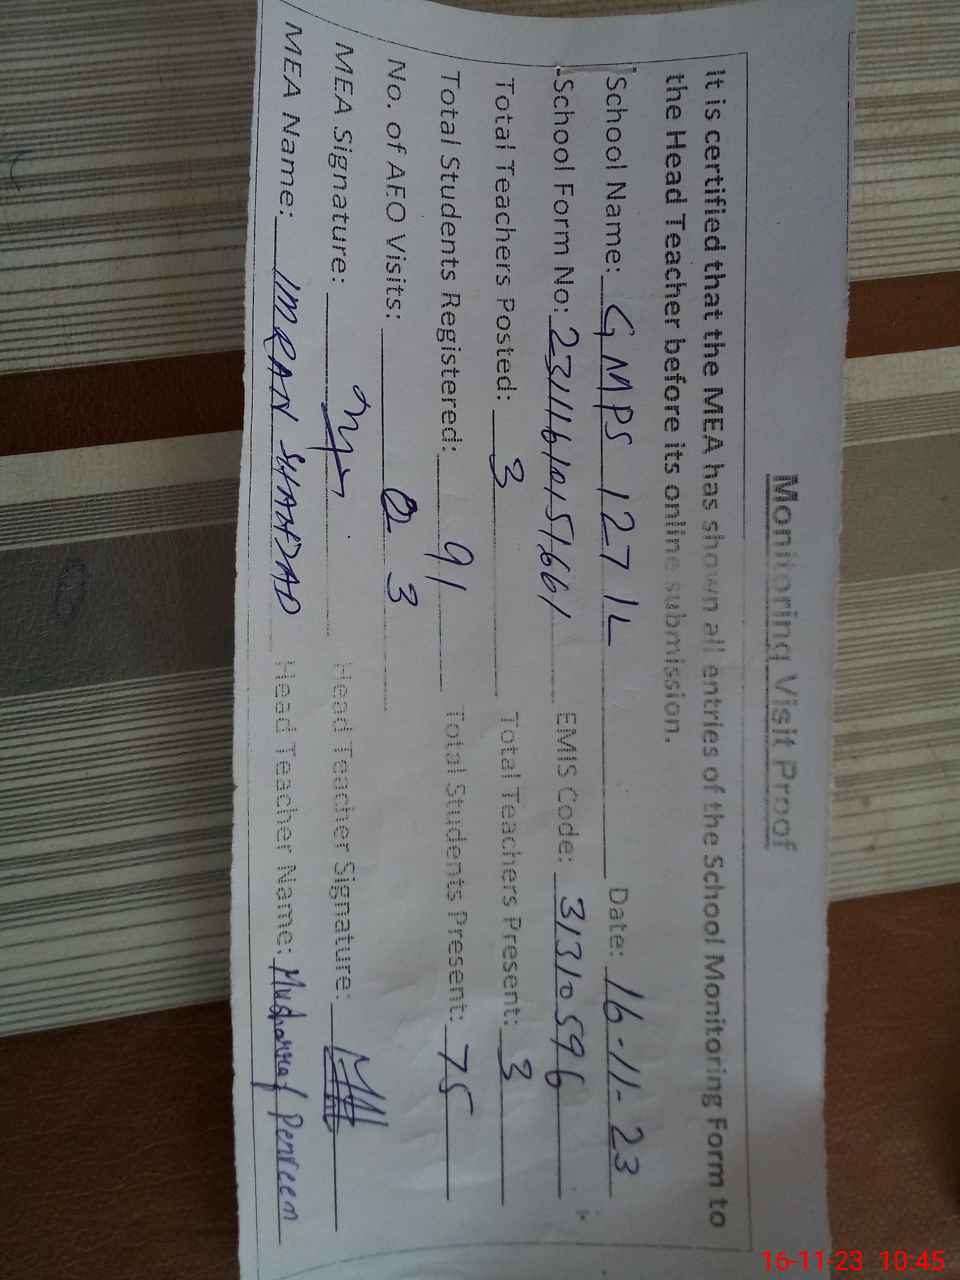 Monitoring Visit Proof
It is certified that the MEA has shown all entries of the School Monitoring Form to
the Head Teacher before its online submission.
School Name: GMPS 127 1L Date: 16-11-23
School Form No: EMIS Code: 31310596
Total Teachers Posted: 3 Total Teachers Present: 3
Total Students Registered: 91 Total Students Present: 75
No. of AEO Visits: 03
MEA Signature: Head Teacher Signature:
MEA Name: IMRAN SHAHDAD Head Teacher Name:
16-11-23 10:45